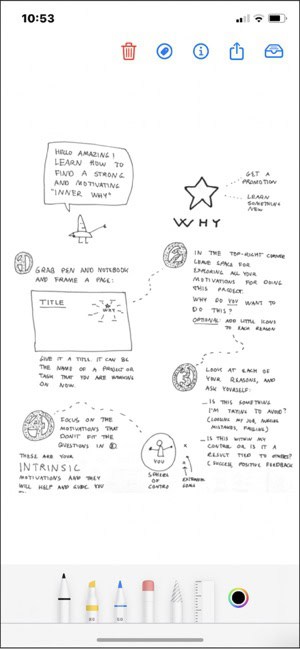 10:53
HELLO AMAZING!
LEARN HOW TO
FIND A STRONG
AND MOTIVATING
"INNER WHY"
GET A
PROMOTION
LEARN
SOMETHING
NEW
WHY
GRAB PEN AND NOTEBOOK
AND FRAME A PAGE:
TITLE
WHY
GIVE IT A TITLE. IT CAN BE
THE NAME OF A PROJECT OR
TASK THAT YOU ARE WORKING
ON NOW.
IN THE TOP-RIGHT CORNER
LEAVE SPACE FOR
EXPLORING ALL YOUR
MOTIVATIONS FOR DOING
THIS PROJECT.
WHY DO YOU WANT TO
DO THIS?
OPTIONAL: ADD LITTLE ICONS
TO EACH REASON
LOOK AT EACH OF
YOUR REASONS, AND
ASK YOURSELF:
... IS THIS SOMETHING
I'M TRYING TO AVOID?
MISTAKES, FAILING)
... IS THIS WITHIN MY
CONTROL OR IS IT A
RESULT TIED TO OTHERS?
(SUCCESS, POSITIVE FEEDBACK
FOCUS ON THE
MOTIVATIONS THAT
DON'T FIT THE
QUESTIONS IN 3
THESE ARE YOUR
INTRINSIC
MOTIVATIONS AND THEY
WILL HELP AND GUIDE YOU
YOU
SPHERE
OF
CONTROL
EXTERNAL
GOAL